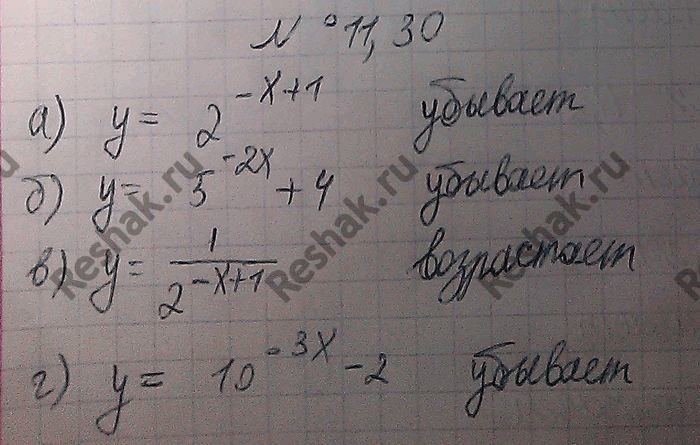 N°11,30
а) y = 2^{-x+1} убывает
б) y = 5^{-2x} + 4 убывает
в) y = \frac{1}{2^{-x+1}} возрастает
г) y = 10^{-3x} - 2 убывает
Reshak.ru
Reshak.ru
Reshak.ru